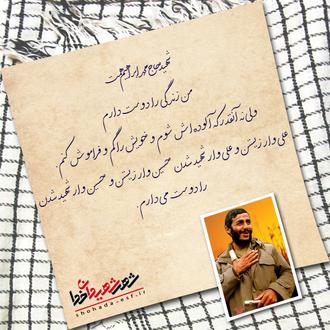 شهید حاج محمد ابراهیم همت
من زندگی را دوست دارم
ولی نه آنقدر که آلوده اش شوم و خویش را گم و فراموش کنم.
علی وار زیستن و علی وار شهید شدن، حسین وار زیستن و حسین وار شهید شدن
را دوست می دارم.
shohada-esf.ir